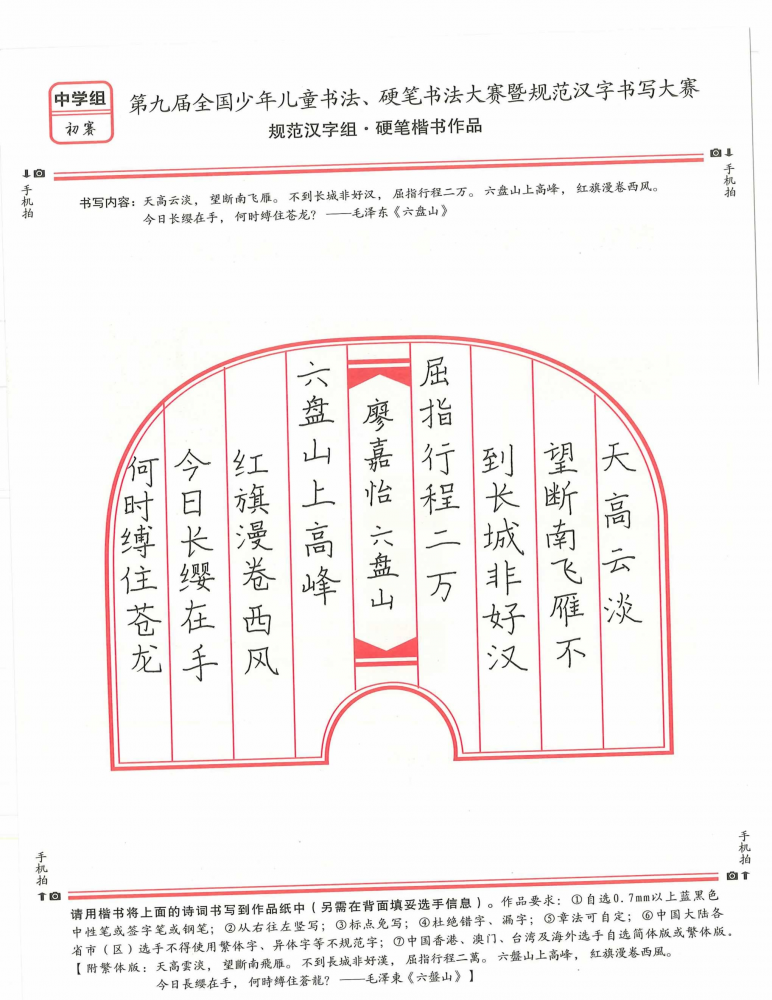 中学组
初赛
第九届全国少年儿童书法、硬笔书法大赛暨规范汉字书写大赛
规范汉字组·硬笔楷书作品
手机拍
手机拍
书写内容：天高云淡，望断南飞雁。不到长城非好汉，屈指行程二万。六盘山上高峰，红旗漫卷西风。
今日长缨在手，何时缚住苍龙？——毛泽东《六盘山》
天高云淡
望断南飞雁不
到长城非好汉
屈指行程二万
廖嘉怡六盘山
六盘山上高峰
红旗漫卷西风
今日长缨在手
何时缚住苍龙
手机拍
手机拍
请用楷书将上面的诗词书写到作品纸中（另需在背面填妥选手信息）。作品要求：①自选0.7mm以上蓝黑色
中性笔或签字笔或钢笔；②从右往左竖写；③标点免写；④杜绝错字、漏字；⑤章法可自定；⑥中国大陆各
省市（区）选手不得使用繁体字、异体字等不规范字；⑦中国香港、澳门、台湾及海外选手自选简体版或繁体版。
【附繁体版：天高雲淡，望斷南飛雁。不到長城非好漢，屈指行程二萬。六盤山上高峰，紅旗漫卷西風。
今日長纓在手，何時縛住蒼龍？——毛澤東《六盤山》】